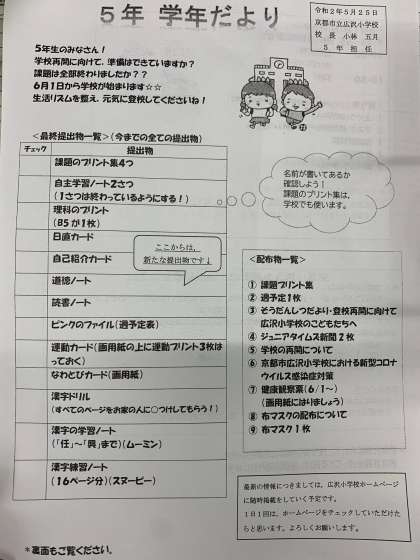 5年 学年だより
令和2年5月25日
京都市立広沢小学校
校長 小林 五月
5年 担任
5年生のみなさん!
学校再開に向けて、準備はできていますか?
課題は全部終わりましたか??
6月1日から学校が始まります☆☆
生活リズムを整え、元気に登校してくださいね!
<最終提出物一覧>(今までの全ての提出物)
チェック 提出物
課題のプリント集4つ
自主学習ノート2さつ
(1さつは終わっているようにする!)
理科のプリント
(B5が1枚)
日直カード
自己紹介カード
道徳ノート
読書ノート
ピンクのファイル(週予定表)
運動カード(画用紙の上に運動プリント3枚は
っておく)
なわとびカード(画用紙)
漢字ドリル
(すべてのページをお家の人に○つけしてもらう!)
漢字の学習ノート
(「任」~「興」まで)(ムーミン)
漢字練習ノート
(16ページ分)(スヌーピー)
ここからは、
新たな提出物です↓
名前が書いてあるか
確認しよう!
課題のプリント集は、
学校でも使います。
<配布物一覧>
① 課題プリント集
② 週予定1枚
③ そうだんしつだより・登校再開に向けて
広沢小学校のこどもたちへ
④ ジュニアタイムズ新聞2枚
⑤ 学校の再開について
⑥ 京都市広沢小学校における新型コロナ
ウイルス感染症対策
⑦ 健康観察票(6/1~)
(画用紙にはりましょう)
⑧ 布マスクの配布について
⑨ 布マスク1枚
最新の情報につきましては、広沢小学校ホームページ
に随時掲載をしていく予定です。
1日1回は、ホームページをチェックしていただけた
らと思います。よろしくお願いします。
*裏面もご覧ください。